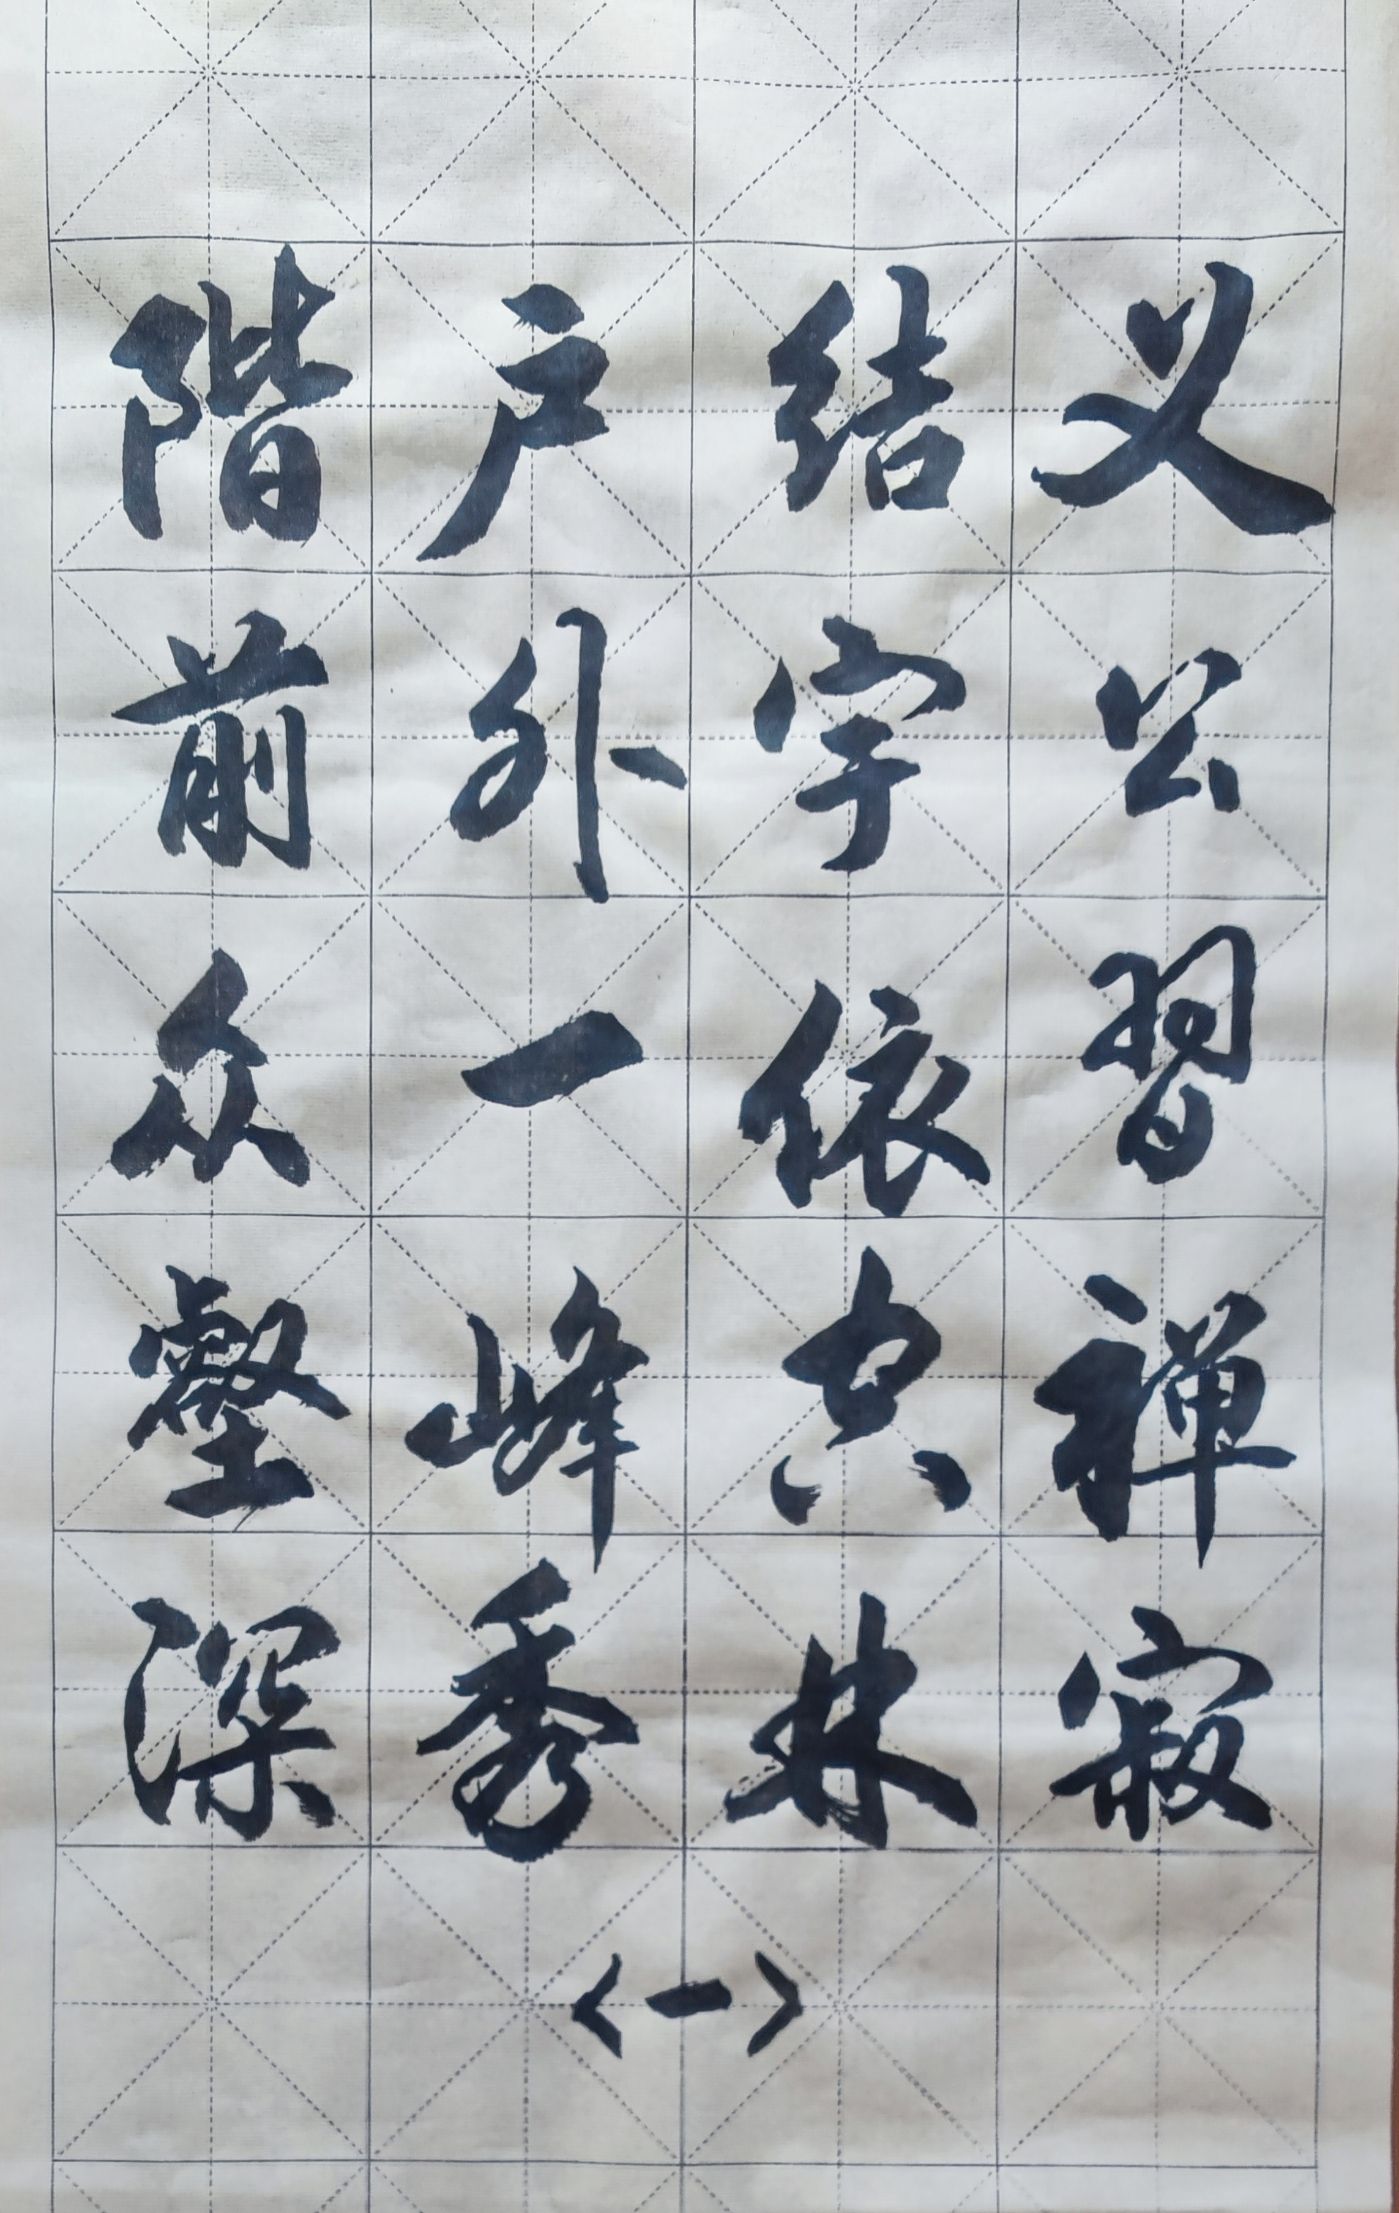 义公习禅寂
结宇依空林
户外一峰秀
阶前众壑深
<一>